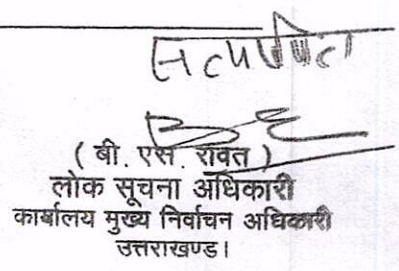 सत्यापित
( बी. एस. रावत )
लोक सूचना अधिकारी
कार्यालय मुख्य निर्वाचन अधिकारी
उत्तराखण्ड।